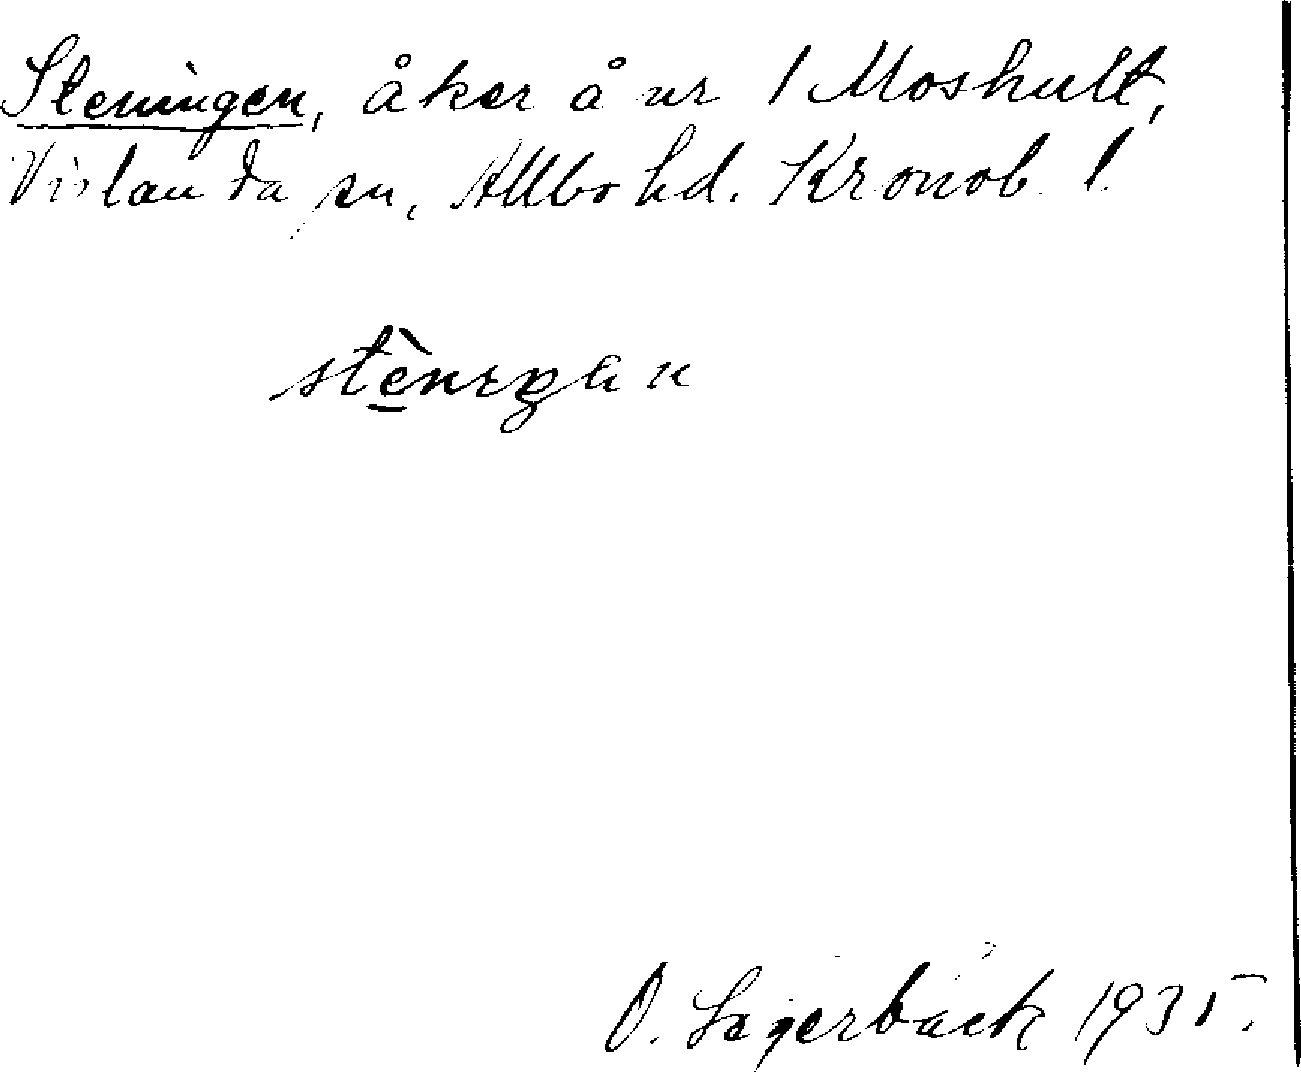 Steningen, åker å nr 1 Moshult,
Vislanda sn, Allbo hd. Kronob. l.
O. Lagerbäck 1935.